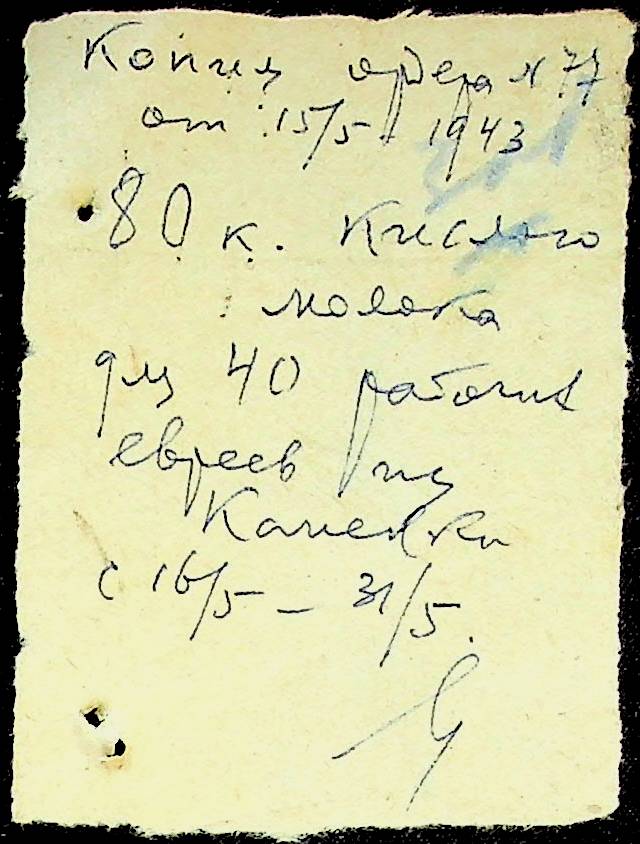 Копия ордера № 77
от 15/5 1943
80 к. кислого
молока
для 40 рабочих
евреев из
Каменки
с 16/5 – 31/5.